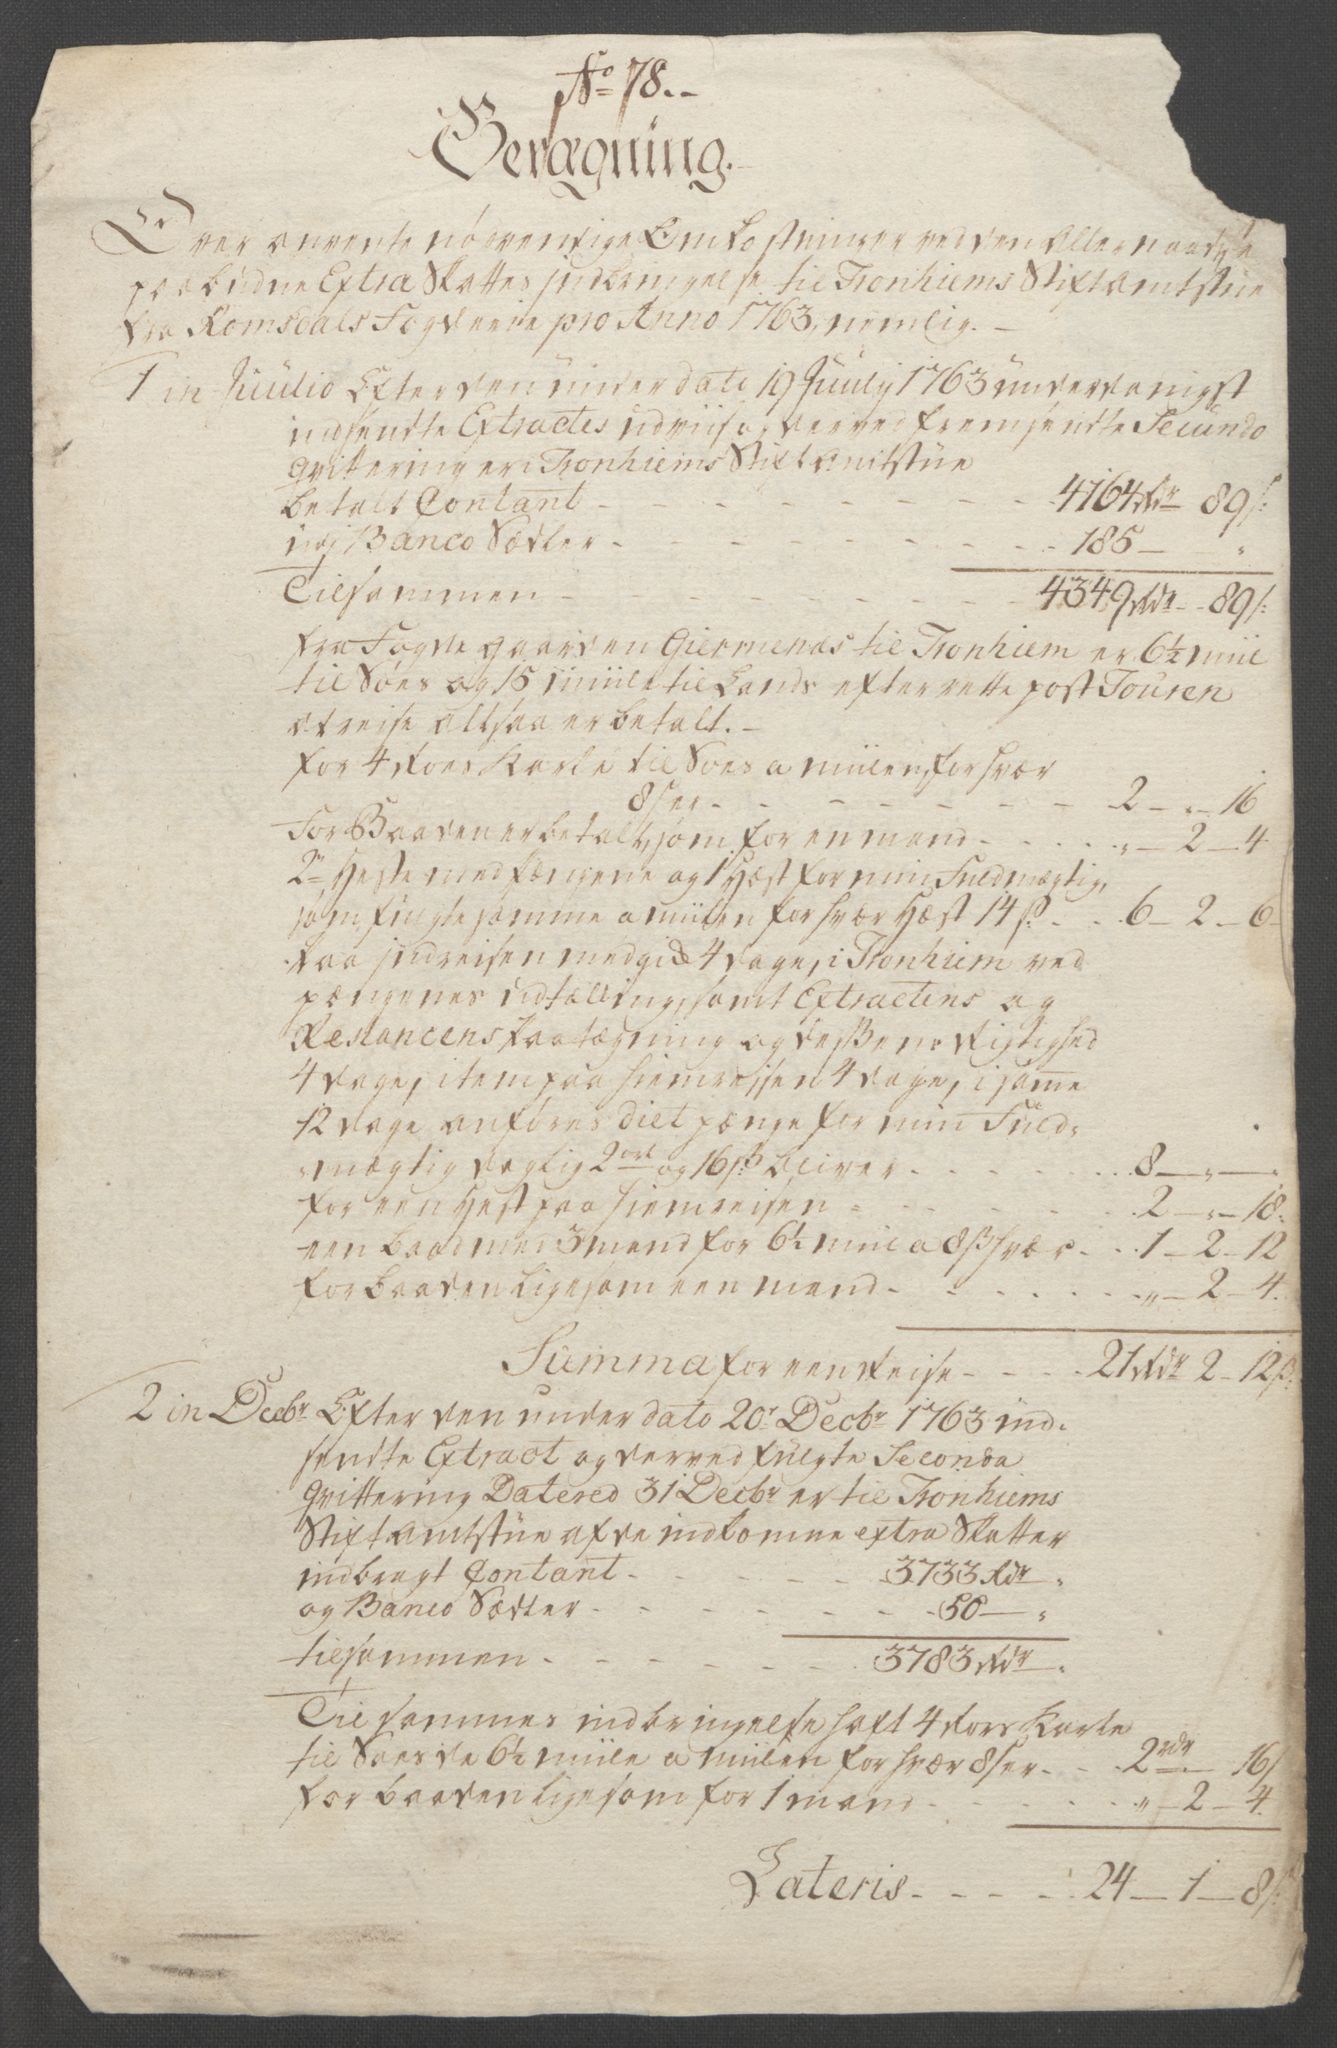 No 78.-
Beregning.
Over anvente nødvendige Omkostninger ved den Allernaadigst
paabudne Extra Skattes Indbringelse til Tronhiems Stiftamtstue
fra Romsdals Fogderie pro Anno 1763, nemlig. -
1 in Juulio Efter den under dato 19 Juuly 1763 underdanigst
indsendte Extractes udviis og derved fremsendte Secundo
Qvitering er i Tronhiems Stiftamtstue
betalt Contant - - - - - - - - 4164 Rdr 89 s:
i Banco Sædler - - - - - - - - 185 — "
Tilsammen - - - - - - - - 4349 Rdr - 89 s:
fra Fogde gaarden Giermenæs til Tronhiem er 6½ miil
til Søes og 15 miile til Lands efter rette post Touren
at reise altsaa er betalt. -
for 4 Roers Karle til Søes a miilen, for hvær
8 ser - - - - - - - - 2 — " — 16
For Baaden er betalt, som for en mand - - - - - " — 2 — 4
2de Heste med pængene og 1 Hæst for min Fuldmægtig,
som fulgte samme a miilen for hvær Hæst 14 s. - - 6 — 2 — 6
Paa indreisen medgik 4 dage, i Tronhiem ved
pængenes udtælling, samt Extractens og
Restancens Paategning og dessen Rigtighed
4 dage, item paa hiemreisen 4 dage, i samme
12 dage anføres diet pænge for min Fuld-
mægtig daglig 2 ort og 16 s bliver - - - - - - 8 — " — "
for een Hest paa hiemreisen - - - - - - 2 — " — 18
een baad med 3 mand for 6½ miil a 8 s hvær - - 1 — 2 — 12
for baaden ligesom een mand - - - - - - " — 2 — 4.
Summa for een Reise - - - - 21 Rdr 2 — 12 s:
2 in Decbr Efter den under dato 20r Decbr 1763 ind-
sendte Extract og derved fulgte Seconda
Qvittering Datered 31 Decbr er til Tronhiems
Stiftamtstue af de indkomne extra Skatter
indbragt Contant - - - - - - 3733 Rdr "
og Banco Sædler - - - - - - 50 — "
tilsammen - - - - - - 3783 Rdr "
Til sammes indbringelse haft 4 Roers Karle
til Søes de 6½ miile a miilen for hvær 8 ser - - 2 rdr — 16 s
for baaden ligesom for 1 mand - - - - - - " — 2 — 4.
Lateris - - - - - 24 — 1 — 8 s: